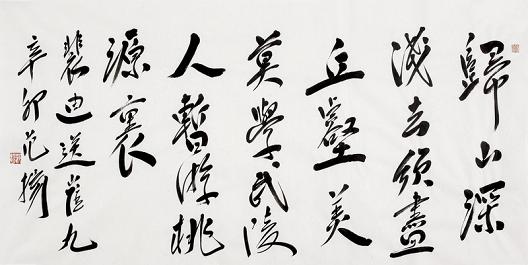 歸山深
淺去須盡
丘壑美
莫學武陵
人暫游桃
源裏
裴迪送崔九
辛卯范